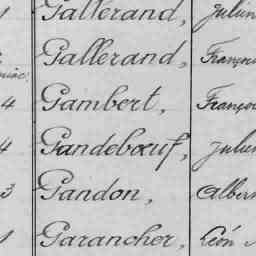 1 Gallerand, Julien
Gallerand, Franço
4 Gambert, Franço
4 Gandebœuf, Julie
3 Gandon, Alber
1 Garancher, Léon